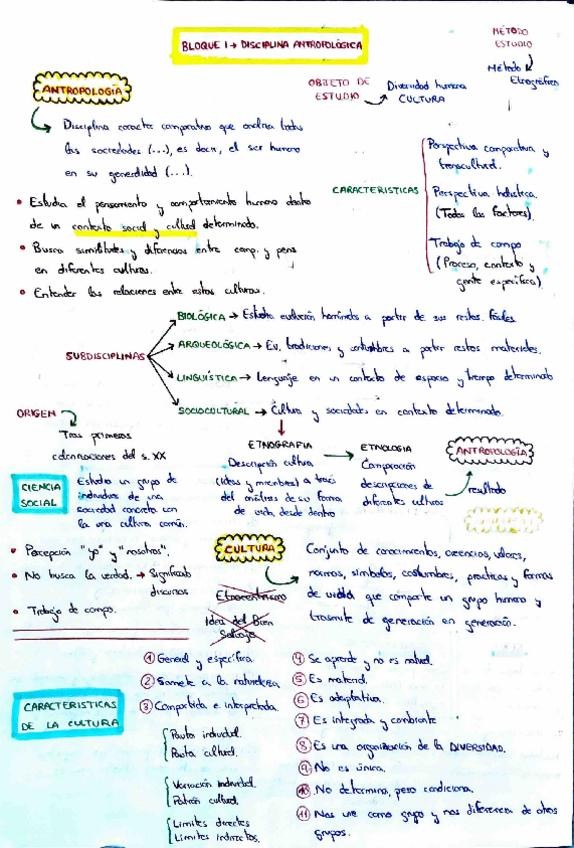 BLOQUE I → DISCIPLINA ANTROPOLÓGICA
MÉTODO
ESTUDIO
Método
Etnográfico
OBJETO DE
ESTUDIO
Diversidad humana
CULTURA
ANTROPOLOGÍA
Disciplina caracter comparativo que analiza todas
las sociedades (...), es decir, el ser humano
en su generalidad (...).
• Estudia el pensamiento y comportamiento humano dentro
de un contexto social y cultural determinado.
• Busca similitudes y diferencias entre comp. y pens
en diferentes culturas.
• Entender las relaciones entre estas culturas.
CARACTERISTICAS
Perspectiva comparativa y
transcultural.
Perspectiva holística.
(Todos los factores).
Trabajo de campo
(Proceso, contexto y
gente específica).
SUBDISCIPLINAS
BIOLÓGICA → Estudia evolución homínidos a partir de sus restos fósiles
ARQUEOLÓGICA → Ev. tradiciones y costumbres a partir restos materiales.
LINGUÍSTICA → Lenguaje en un contexto de espacio y tiempo determinado
SOCIOCULTURAL → Cultura y sociedades en contexto determinado.
ORIGEN
Tras primeras
colonizaciones del s. XX
ETNOGRAFIA
Descripción cultura
(ideas y miembros) a través
del análisis de su forma
de vida desde dentro
ETNOLOGIA
Comparación
descripciones de
diferentes culturas
ANTROPOLOGÍA
resultado
CIENCIA
SOCIAL
Estudia un grupo de
individuos de una
sociedad concreta con
la una cultura común.
• Percepción "yo" y "nosotros".
• No busca la verdad. → Significado
discursos
• Trabajo de campo.
CULTURA
Etnocentrismo
Idea del Buen
Salvaje
Conjunto de conocimientos, creencias, valores,
normas, símbolos, costumbres, practicas y formas
de vida que comparte un grupo humano y
trasmite de generación en generación.
CARACTERISTICAS
DE LA CULTURA
① General y específica
② Somete a la naturaleza
③ Compartida e interpretada.
Pauta individual.
Pauta cultural.
Variación individual.
Patrón cultural.
Límites directos
Límites indirectos.
④ Se aprende y no es natural.
⑤ Es material.
⑥ Es adaptativa.
⑦ Es integrada y cambiante
⑧ Es una organización de la DIVERSIDAD.
⑨ No es única.
⑩ No determina, pero condiciona.
⑪ Nos une como grupo y nos diferencia de otros
grupos.